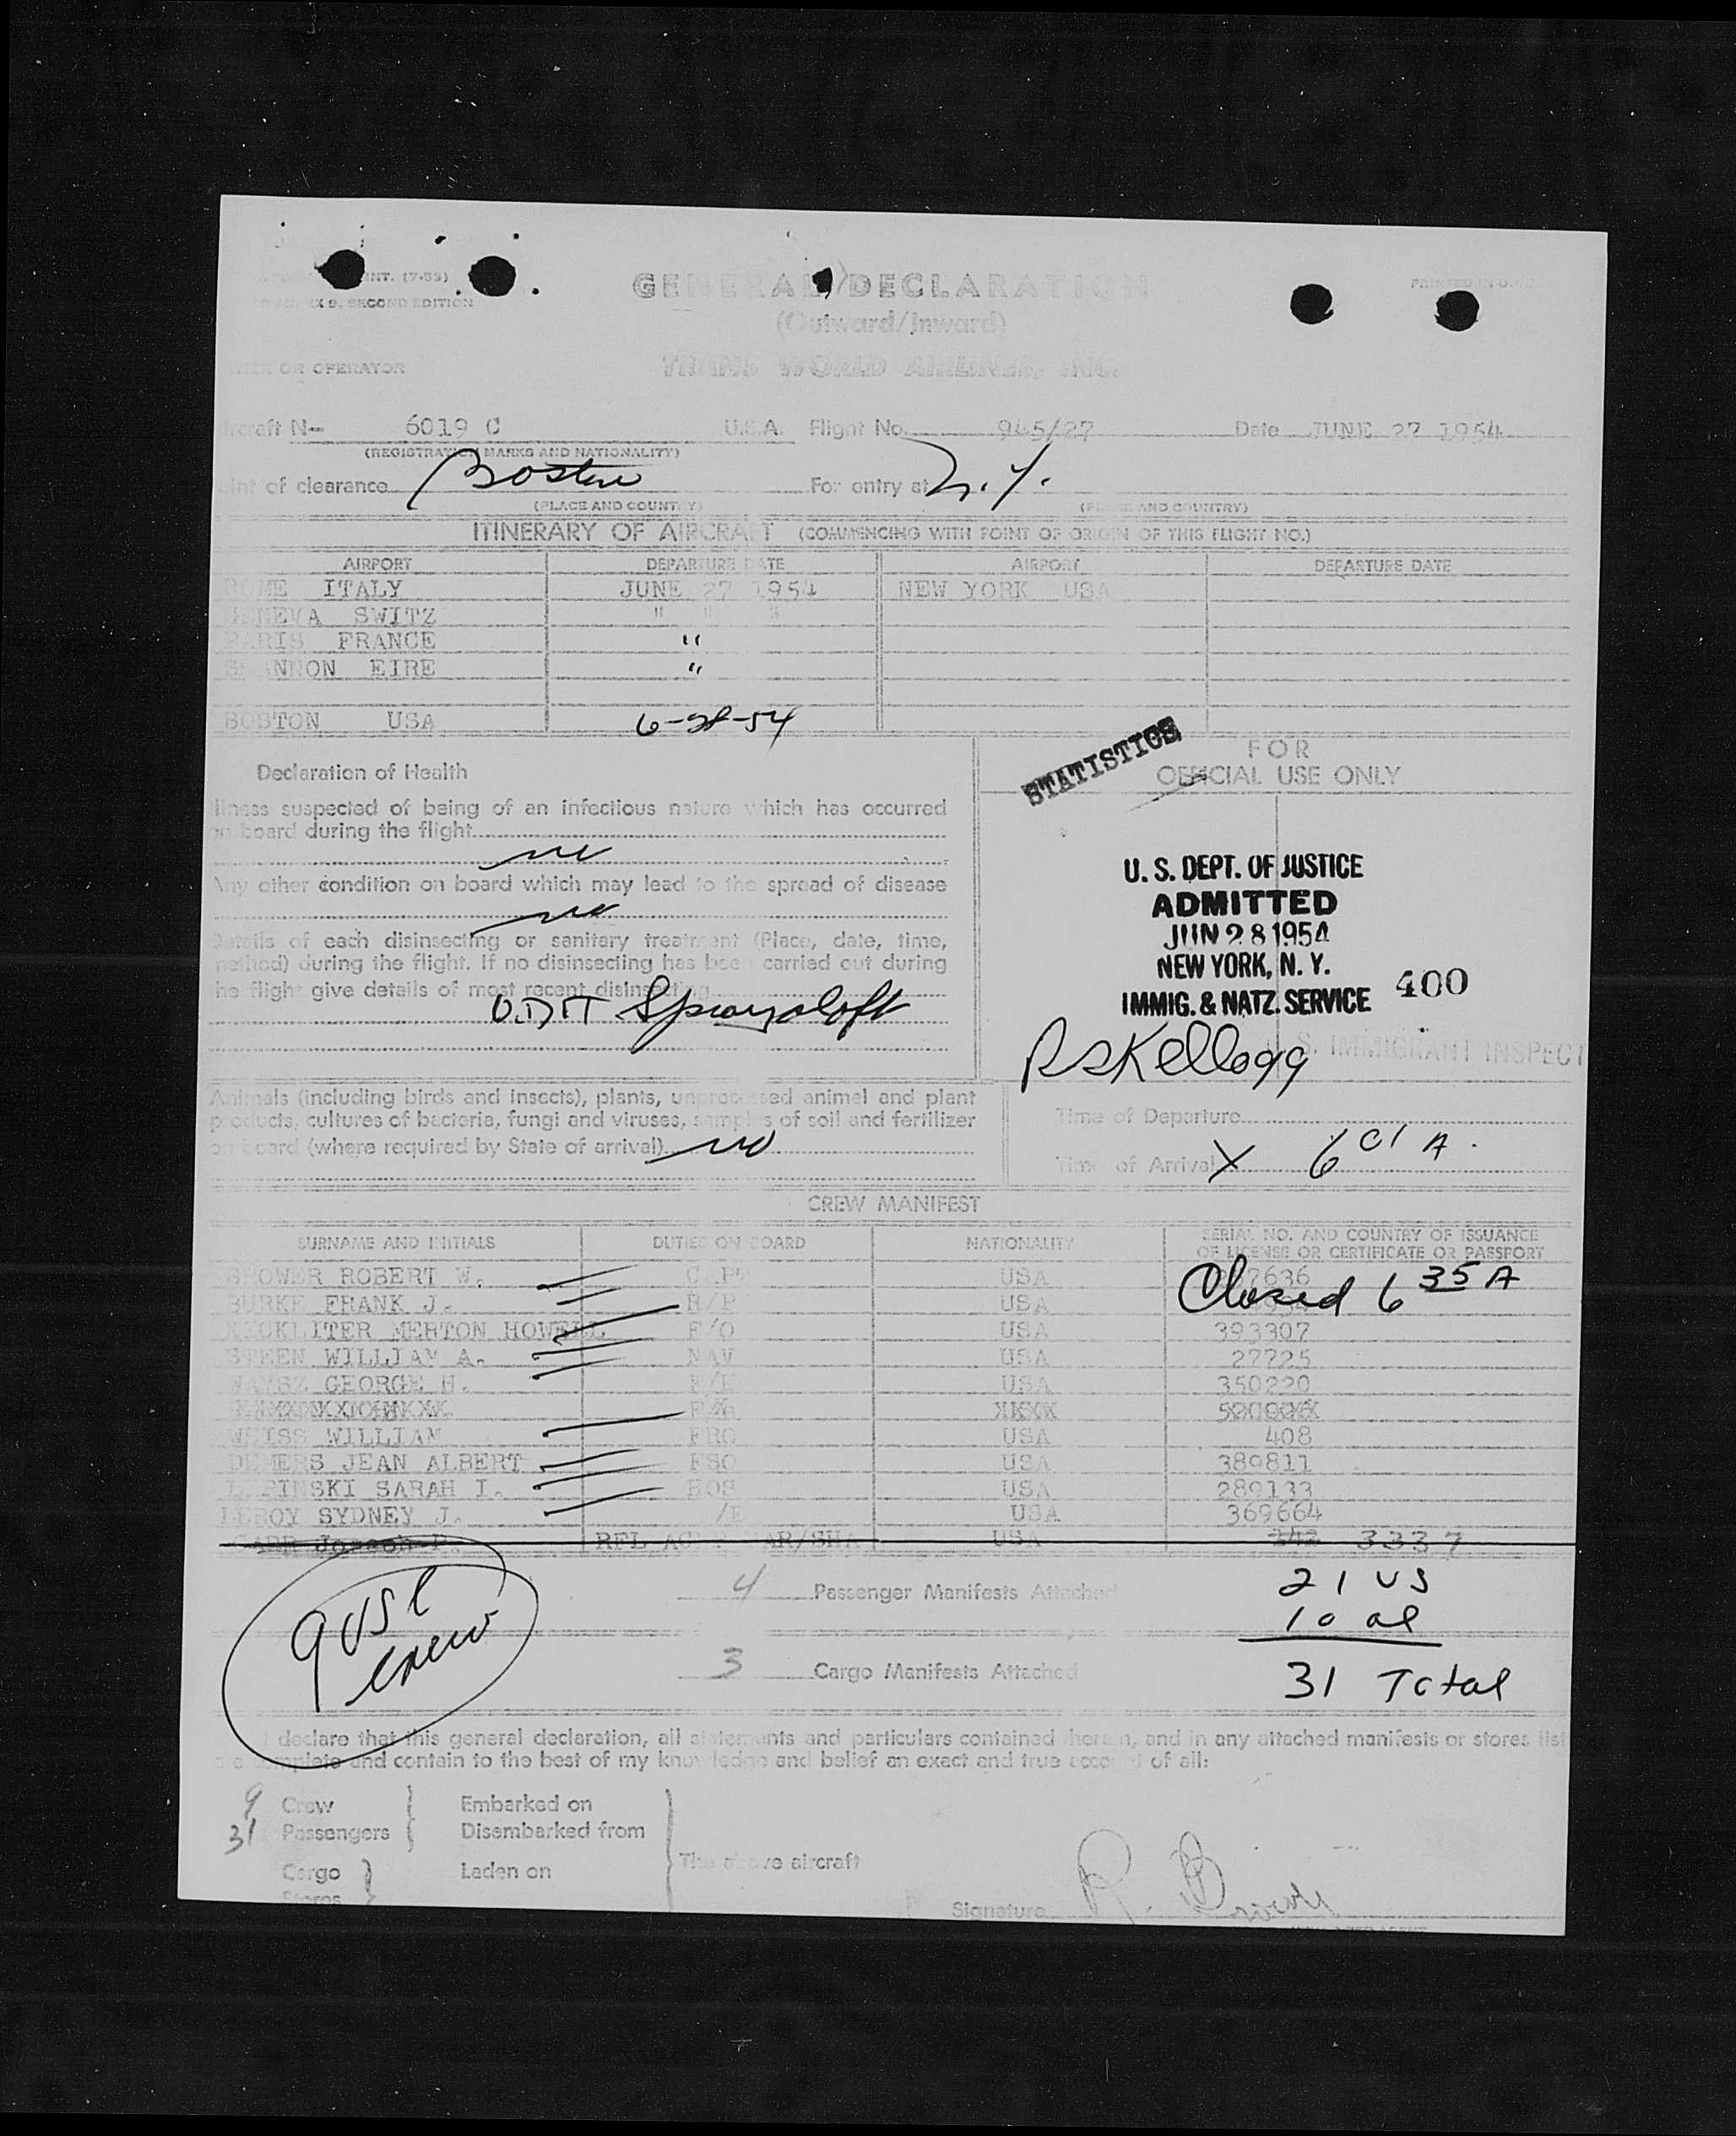 INT. (7-53)
EX 9, SECOND EDITION
GENERAL DECLARATION
(Outward/Inward)
OR OPERATOR
TRANS WORLD AIRLINES, INC.
PRINTED IN U.S.
ircraft N— 6019 C U.S.A. Flight No. 945/27 Date JUNE 27 1954
(REGISTRATION MARKS AND NATIONALITY)
int of clearance Boston For entry at N.Y.
(PLACE AND COUNTRY) (PLACE AND COUNTRY)
ITINERARY OF AIRCRAFT (COMMENCING WITH POINT OF ORIGIN OF THIS FLIGHT NO.)
AIRPORT DEPARTURE DATE AIRPORT DEPARTURE DATE
ROME ITALY JUNE 27 1954 NEW YORK USA
GENEVA SWITZ " " "
PARIS FRANCE "
SHANNON EIRE "
BOSTON USA 6-28-54
STATISTICS
FOR
OFFICIAL USE ONLY
Declaration of Health
Illness suspected of being of an infectious nature which has occurred
on board during the flight
no
Any other condition on board which may lead to the spread of disease
no
Details of each disinsecting or sanitary treatment (Place, date, time,
method) during the flight. If no disinsecting has been carried out during
the flight give details of most recent disinsecting
DDT Spray aloft
U. S. DEPT. OF JUSTICE
ADMITTED
JUN 28 1954
NEW YORK, N. Y. 400
IMMIG. & NATZ. SERVICE
RSKellogg U.S. IMMIGRANT INSPECT
Animals (including birds and insects), plants, unprocessed animal and plant
products, cultures of bacteria, fungi and viruses, samples of soil and fertilizer
on board (where required by State of arrival) no
Time of Departure
Time of Arrival X 6 01 A.
CREW MANIFEST
SURNAME AND INITIALS DUTIES ON BOARD NATIONALITY SERIAL NO. AND COUNTRY OF ISSUANCE
OF LICENSE OR CERTIFICATE OR PASSPORT
ROBERT W. CAPT USA 7636
Closed 6 35 A
BURKE FRANK J. R/P USA
MERTON HOWELL F/O USA 393307
STEEN WILLIAM A. NAV USA 27725
WAYSZ GEORGE H. F/E USA 350220
WEISS WILLIAM FRO USA 408
DEMERS JEAN ALBERT FSO USA 389811
PINSKI SARAH I. HOS USA 289133
LEROY SYDNEY J. /E USA 369664
CARR Joseph P. RFL AG AR/SHA USA 142 3337
9 USC
crew
4 Passenger Manifests Attached
21 US
10 al
3 Cargo Manifests Attached
31 Total
I declare that this general declaration, all statements and particulars contained herein, and in any attached manifests or stores list
are complete and contain to the best of my knowledge and belief an exact and true account of all:
9 Crew Embarked on
31 Passengers Disembarked from
The above aircraft
Cargo Laden on
Stores
Signature